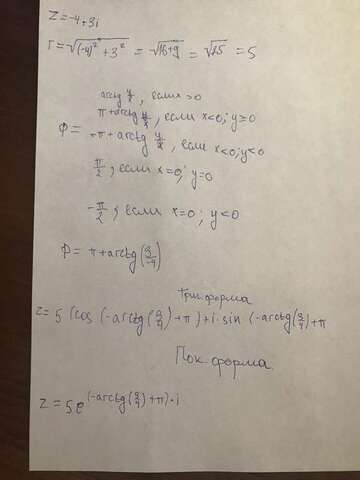 Z = -4+3i
r = √(-4)²+3² = √16+9 = √25 = 5
arctg y/x, если >0
π+arctg y/x, если x<0; y≥0
φ = -π+arctg y/x, если x<0; y<0
π/2, если x=0; y=0
-π/2, если x=0; y<0
φ = π+arctg(3/-4)
Триг. форма
z = 5 (cos (-arctg(3/4)+π)+i·sin (-arctg(3/4)+π
Пок. форма
z = 5e^(-arctg(3/4)+π)·i